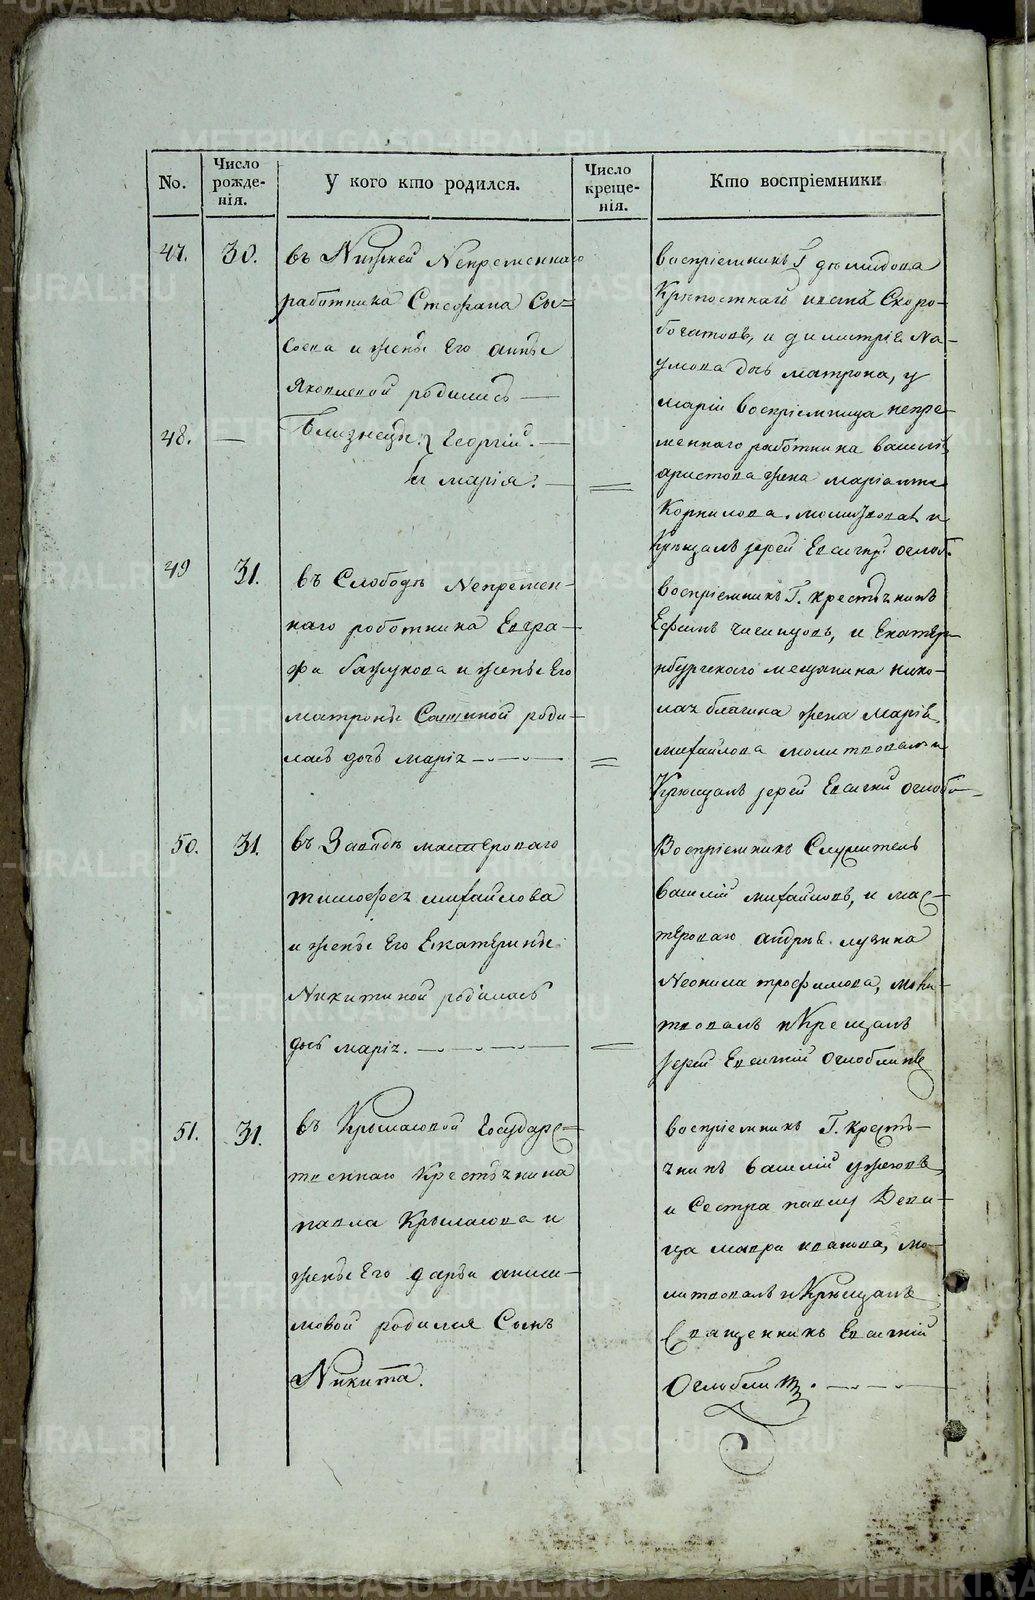 No.
Число рожде- нія.
У кого кто родился.
Число креще- нія.
Кто воспріемники
47.
30.
въ Нижней Непременнаго
работника Стефана Сы-
соева и жены Его анны
Яковлевой родились
48.
Близнецы: Георгий.
и марія.
воспріемникъ Г демидова
Крѣпостнаго Скоро-
богатовъ, и димитрія На-
умова дочь матрона, у
маріи воспріемница непре-
меннаго работника василія
аристова жена маріамна
Корнилова. молитвовалъ и
Крещалъ іерей Евсигній оглоб.
49
31.
въ Слободѣ Непремен-
наго работника Евгра-
фа бажукова и жены Его
матроны Савиной роди-
лась дочь марія
воспріемникъ Г. крестьянинъ
Ефимъ чисицовъ, и Екатер-
нбургскаго мещанина нико-
лая благина жена Марія
михайлова молитвовалъ и
Крещалъ іерей Евсигній оглобл
50.
31.
въ Заводѣ мастероваго
тимофея михайлова
и жены Его Екатерины
Никитиной родилась
дочь марія.
Воспріемникъ Служитель
василій михайловъ, и мас-
тероваго андрея лузина
Неонила трофимова, моли-
твовалъ и Крещалъ
іерей Евсигній Оглоблинъ
51.
31.
въ Крыласовой Государс-
твеннаго Крестьянина
павла Крыласова и
жены Его дарьи аниси-
мовой родился Сынъ
Никита.
воспріемникъ Г. кресть-
янинъ василій ужеговъ,
и Сестра павлу Деви-
ца мавра иванова, мо-
литвовалъ и Крещалъ
Священникъ Евсигній
Оглоблинъ.
METRIKI.GASO-URAL.RU